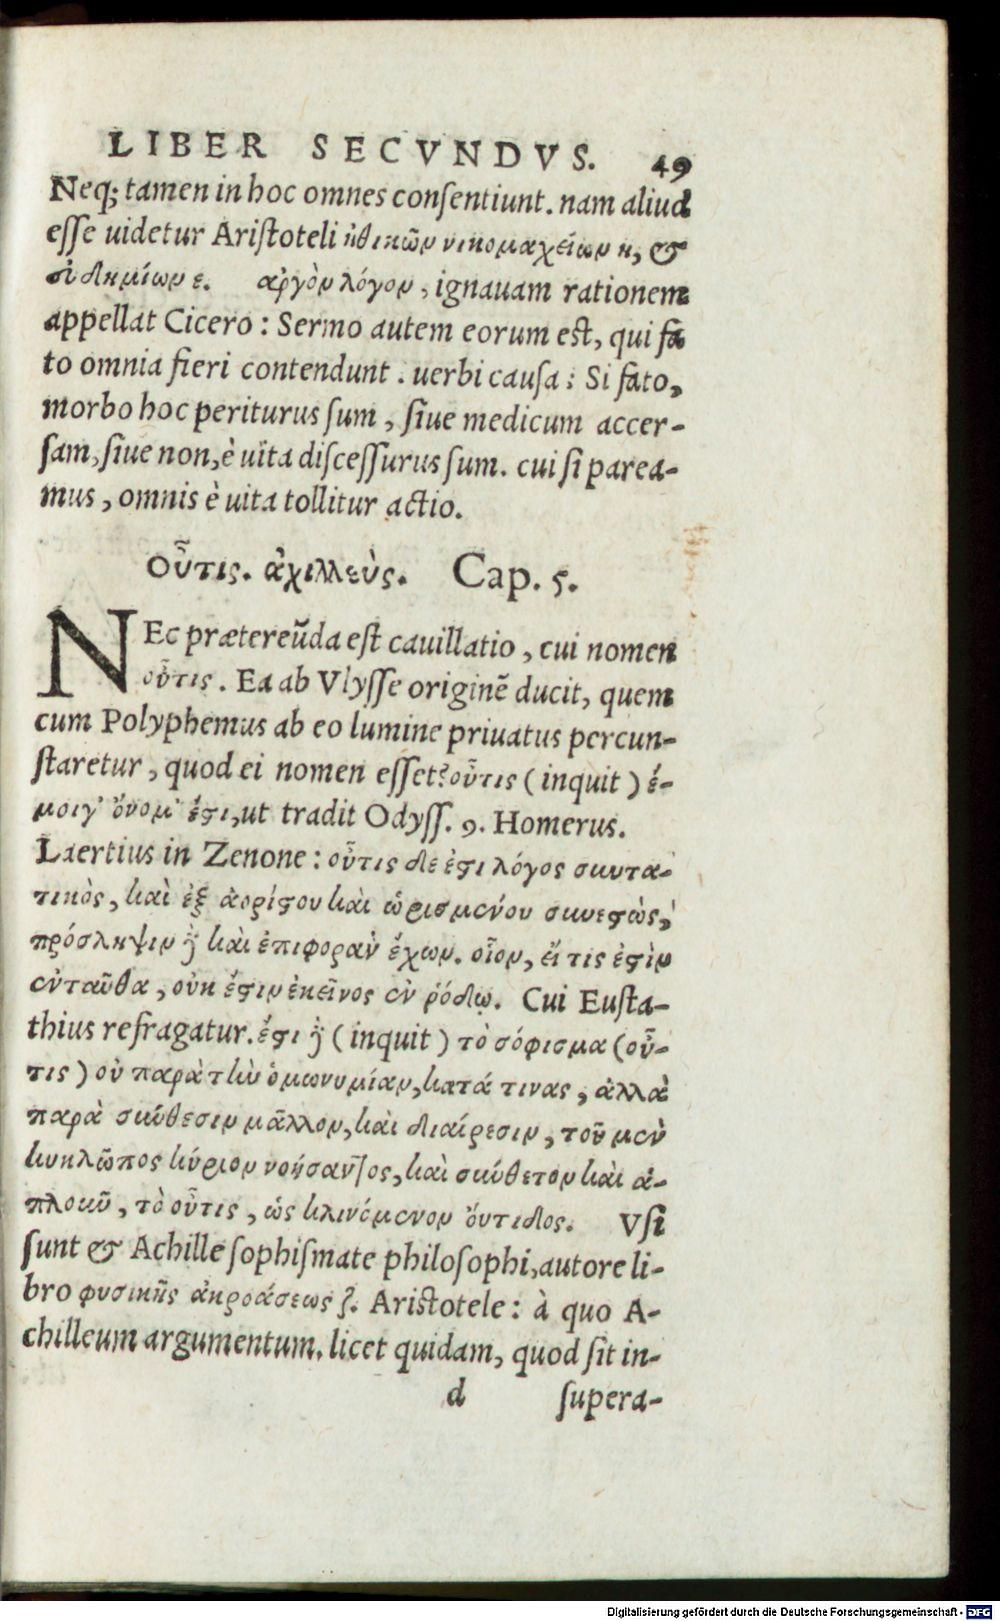 LIBER SECVNDVS. 49
Neq; tamen in hoc omnes consentiunt. nam aliud
esse uidetur Aristoteli ἠθικῶν νικομαχείων κ, &
εὐδημίων ε. ἀργὸν λόγον, ignauam rationem
appellat Cicero: Sermo autem eorum est, qui fa
to omnia fieri contendunt. uerbi causa: Si fato,
morbo hoc periturus sum, siue medicum accer-
sam, siue non, è uita discessurus sum. cui si parea-
mus, omnis è uita tollitur actio.
οὖτις. ἀχιλλεὺς. Cap. 5.
NEc prætereũda est cauillatio, cui nomen
οὖτις. Ea ab Vlysse originẽ ducit, quem
cum Polyphemus ab eo lumine priuatus percun-
staretur, quod ei nomen esset? οὖτις (inquit) ἔ-
μοιγ' ὄνομ' ἔστι, ut tradit Odyss. 9. Homerus.
Laertius in Zenone: οὖτις δε ἐστι λόγος συντα-
τικὸς, καὶ ἐξ ἀορίστου καὶ ὡρισμένου συνεστὼς,
πρόσληψιν δὲ καὶ ἐπιφορὰν ἔχων. οἷον, εἴ τις ἐστὶν
ἐνταῦθα, οὐκ ἔστιν ἐκεῖνος ἐν ῥόδῳ. Cui Eusta-
thius refragatur. ἔστι δὲ (inquit) τὸ σόφισμα (οὖ-
τις) οὐ παρὰ τὴν ὁμωνυμίαν, κατά τινας, ἀλλὰ
παρὰ σύνθεσιν μᾶλλον, καὶ διαίρεσιν, τοῦ μὲν
κυκλῶπος κύριον νοήσαντος, καὶ σύνθετον καὶ ἀ-
πλοκῦ, τὸ οὖτις, ὡς κλινόμενον ὄυτιδος. Vsi
sunt & Achille sophismate philosophi, autore li-
bro φυσικῆς ἀκροάσεως ζ. Aristotele: à quo A-
chilleum argumentum. licet quidam, quod sit in-
d supera-
Digitalisierung gefördert durch die Deutsche Forschungsgemeinschaft - DFG